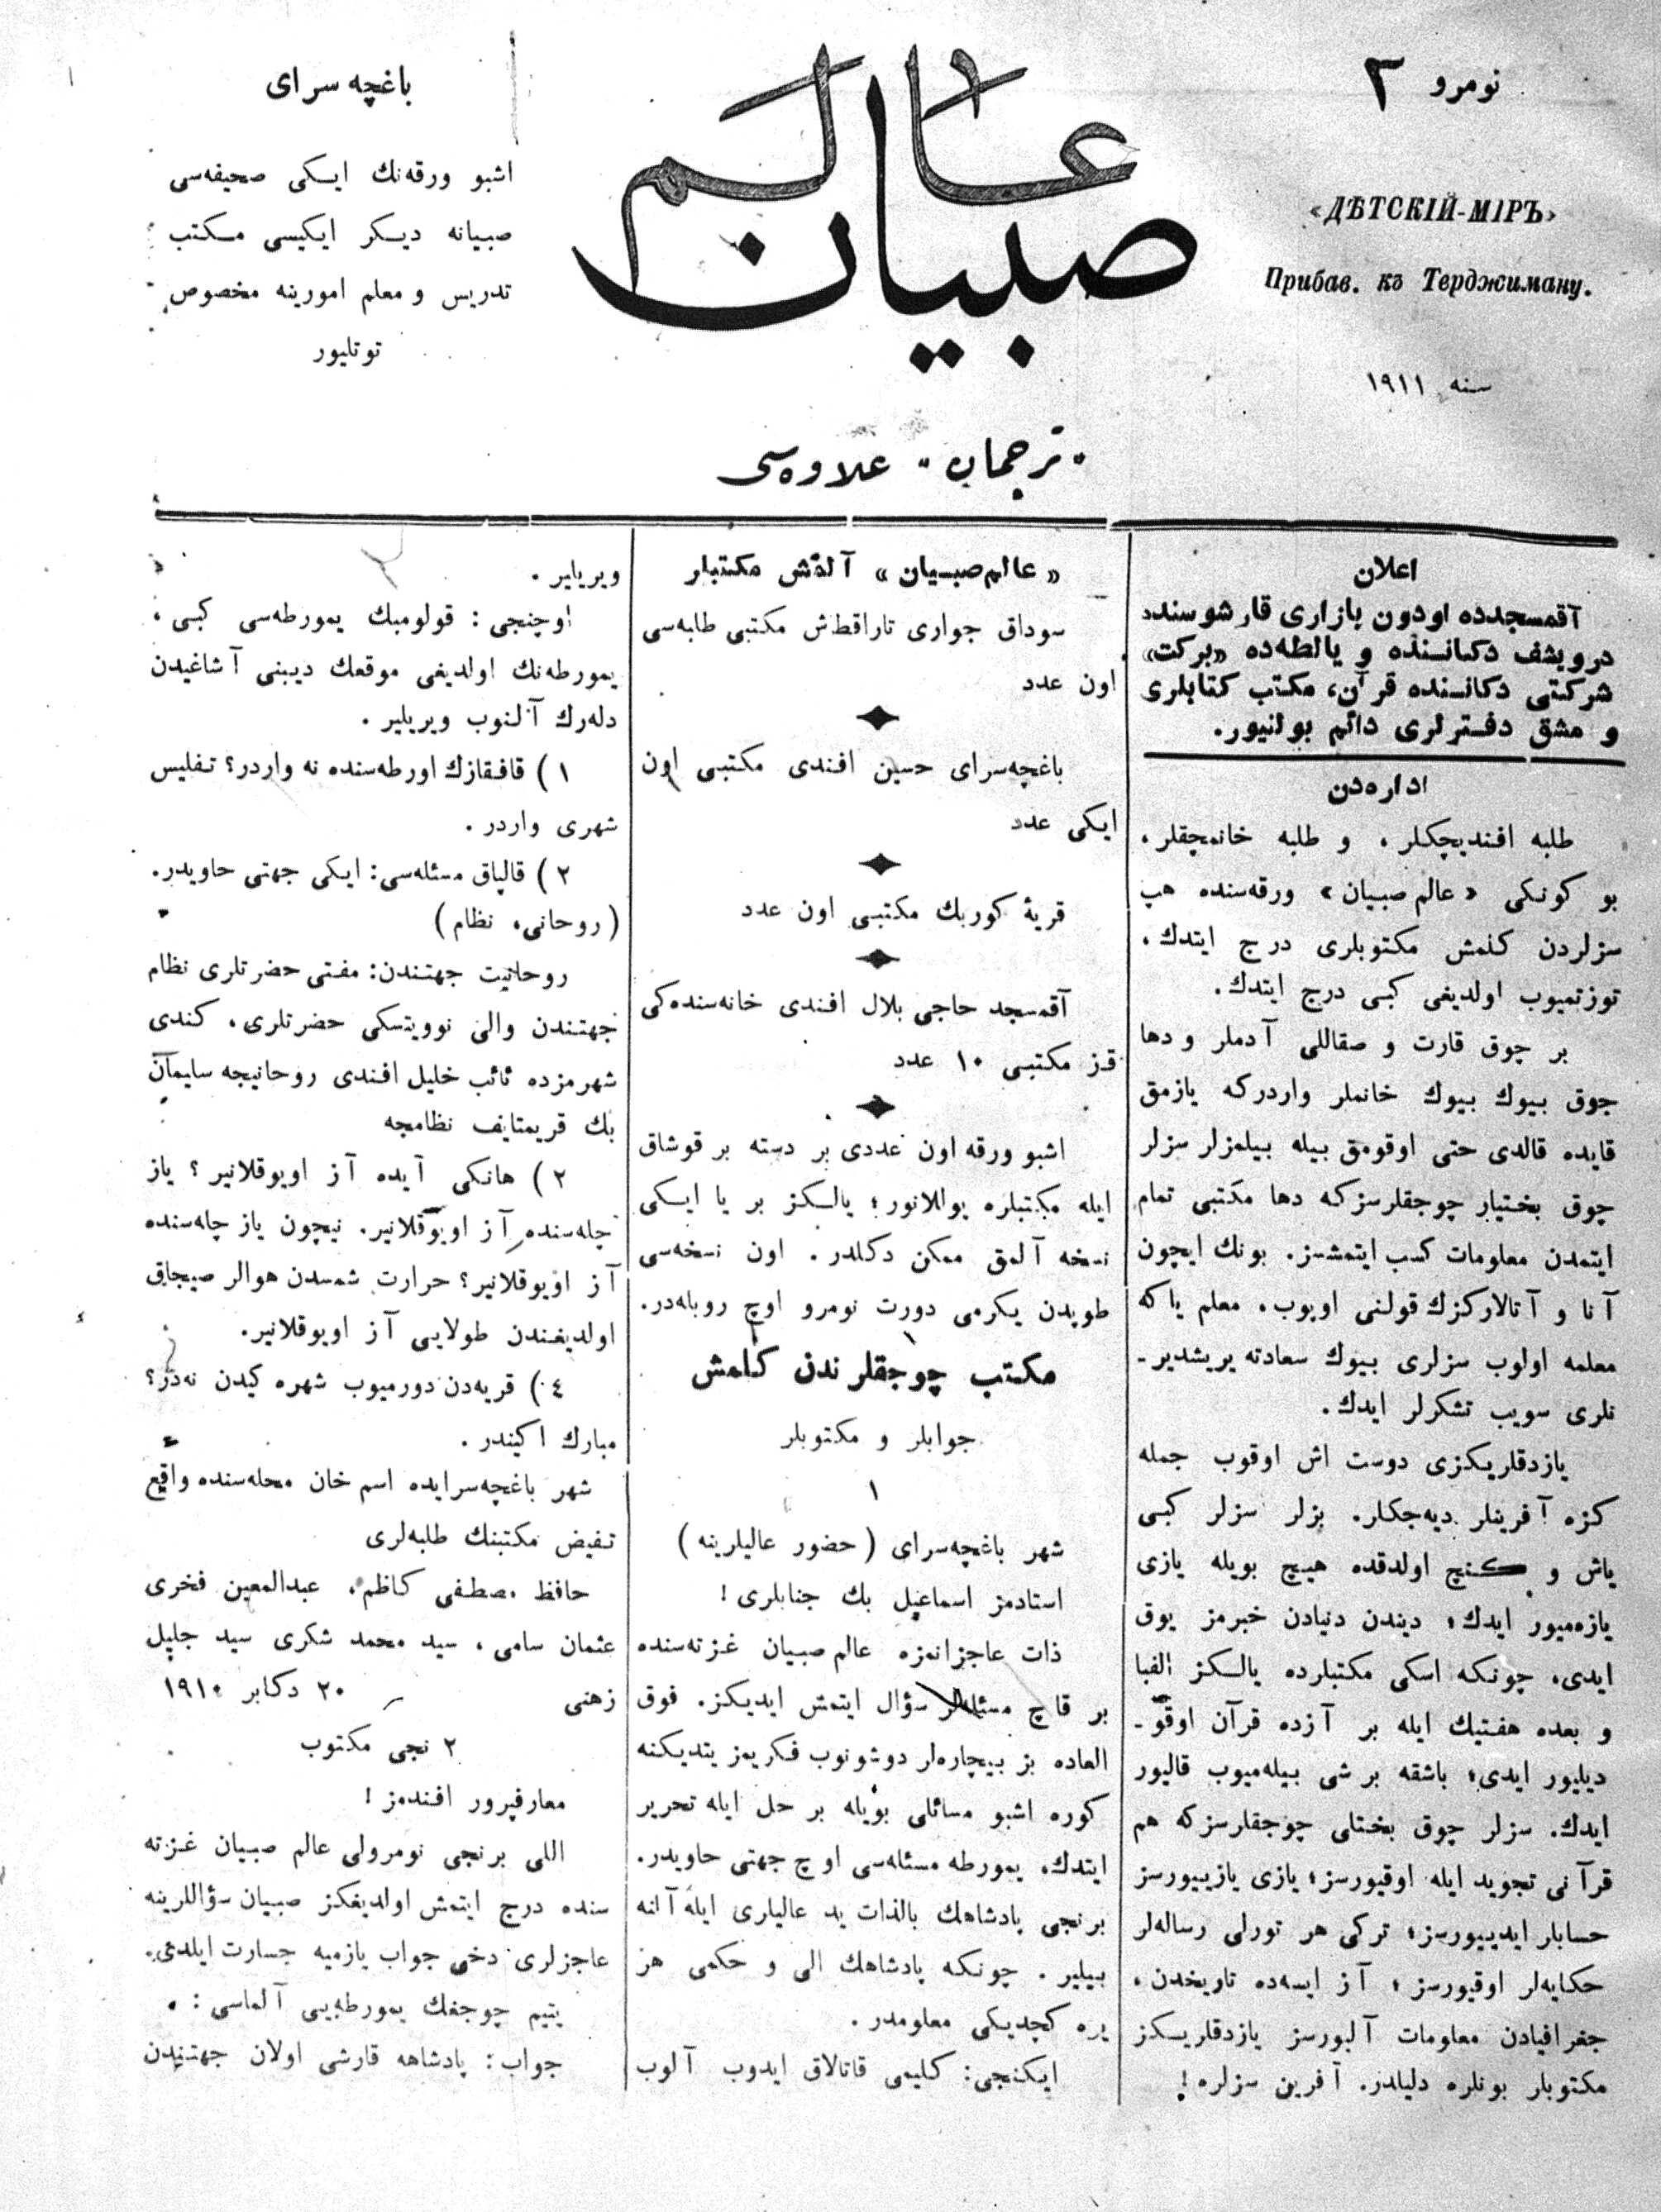 نومرو ۲
«ДѢТСКІЙ-МІРЪ»
Прибав. къ Терджиману.
سنه ۱۹۱۱
عالم
صبیان
„ترجمان“ علاوه‌سی
باغچه سرای
اشبو ورقه‌نك ایكی صحیفه‌سی
صبیانه دیكر ایكیسی مكتب
تدریس و معلم امورینه مخصوص
توتلیور
اعلان
آقمسجدده اودون بازاری قارشوسنده
درویشف دكانسنده و یالطه‌ده «بركت»
شركتی دكانسنده قرآن، مكتب كتابلری
و مشق دفترلری دائم بولنیور.
اداره‌دن
طلبه افندیچكلر، و طلبه خانمچقلر،
بو كونكی «عالم صبیان» ورقه‌سنده هپ
سزلردن كلمش مكتوبلری درج ایتدك،
توزتمیوب اولدیغی كبی درج ایتدك.
بر چوق قارت و صقاللی آدملر و دها
چوق بیوك بیوك خانملر واردركه یازمق
قایده قالدی حتی اوقومق بیله بیلمزلر سزلر
چوق بختیار چوجقلرسزكه دها مكتبی تمام
ایتمدن معلومات كسب ایتمشسز. بونك ایچون
آنا و آتالاركزك قولنی اویوب، معلم یا كه
معلمه اولوب سزلری بیوك سعادته یریشدیر-
نلری سویب تشكرلر ایدك.
یازدقلریكزی دوست اش اوقوب جمله
كزه آفرینلر دیه‌جكلر. بزلر سزلر كبی
یاش و كنچ اولدقده هیچ بویله یازی
یازه‌میور ایدك؛ دیندن دنیادن خبرمز یوق
ایدی، چونكه اسكی مكتبلرده یالكز الفبا
و بعده هفتیك ایله بر آزده قرآن اوقو-
دیلیور ایدی؛ باشقه بر شی بیله‌میوب قالیور
ایدك. سزلر چوق بختلی چوجقلرسزكه هم
قرآنی تجوید ایله اوقیورسز؛ یازی یازییورسز
حسابلر ایدییورسز؛ تركی هر تورلی رساله‌لر
حكایه‌لر اوقیورسز؛ آز ایسه‌ده تاریخدن،
جغرافیادن معلومات آلیورسز یازدقلریكز
مكتوبلر بونلره دلیلدر. آفرین سزلره!
«عالم صبیان» آلمش مكتبلر
سوداق جواری تاراقطش مكتبی طلبه‌سی
اون عدد
باغچه‌سرای حسین افندی مكتبی اون
ایكی عدد
قریهٔ كوربك مكتبی اون عدد
آقمسجد حاجی بلال افندی خانه‌سنده‌كی
قز مكتبی ۱۰ عدد
اشبو ورقه اون عددی بر دسته بر قوشاق
ایله مكتبلره یوللانور؛ یالكز بر یا ایكی
نسخه آلمق ممكن دكلدر. اون نسخه‌سی
طوپدن یكرمی دورت نومرو اوچ روبله‌در.
مكتب چوجقلرندن كلمش
جوابلر و مكتوبلر
۱
شهر باغچه‌سرای (حضور عالیلرینه)
استادمز اسماعیل بك جنابلری!
ذات عاجزانمزه عالم صبیان غزته‌سنده
بر قاچ مسئله‌لر سؤال ایتمش ایدیكز. فوق
العاده بز بیچاره‌لر دوشونوب فكریمز یتدیكنه
كوره اشبو مسائلی بویله بر حل ایله تحریر
ایتدك، یمورطه مسئله‌سی اوچ جهتی حاویدر.
برنجی پادشاهك بالذات ید عالیلری ایله آلنه
بیلیر. چونكه پادشاهك الی و حكمی هر
یره كچدیكی معلومدر.
ایكنجی: كلیمی قاتالاق ایدوب آلوب
ویریلیر.
اوچنجی: قولومبك یمورطه‌سی كبی،
یمورطه‌نك اولدیغی موقعك دیبنی آشاغیدن
دله‌رك آلنوب ویریلیر.
۱) قافقازك اورطه‌سنده نه واردر؟ تفلیس
شهری واردر.
۲) قالپاق مسئله‌سی: ایكی جهتی حاویدر.
(روحانی، نظام)
روحانیت جهتندن: مفتی حضرتلری نظام
جهتندن والی نوویتسكی حضرتلری، كندی
شهرمزده نائب خلیل افندی روحانیجه سلیمان
بك قریمتایف نظامجه
۲) هانكی آیده آز اویوقلانیر؟ یاز
چله‌سنده آز اویوقلانیر. نیچون یاز چله‌سنده
آز اویوقلانیر؟ حرارت شمسدن هوالر صیجاق
اولدیغندن طولایی آز اویوقلانیر.
٤) قریه‌دن دورمیوب شهره كیدن نه‌در؟
مبارك اكیندر.
شهر باغچه‌سرایده اسم خان محله‌سنده واقع
تفیض مكتبنك طلبه‌لری
حافظ مصطفی كاظم، عبدالمعین فخری
عثمان سامی، سید محمد شكری سید جلیل
زهنی ۲۰ دكابر ۱۹۱۰
۲ نجی مكتوب
معارفپرور افندمز!
اللی برنجی نومرولی عالم صبیان غزته
سنده درج ایتمش اولدیغكز صبیان سؤاللرینه
عاجزلری دخی جواب یازمیه جسارت ایلدی.
یتیم چوجغك یمورطه‌یی آلماسی:
جواب: پادشاهه قارشی اولان جهتندن